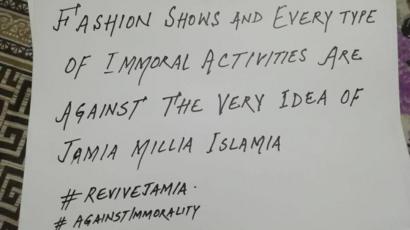 FASHION SHOWS AND EVERY TYPE
OF IMMORAL ACTIVITIES ARE
AGAINST THE VERY IDEA OF
JAMIA MILLIA ISLAMIA
#REVIVEJAMIA.
#AGAINSTIMMORALITY